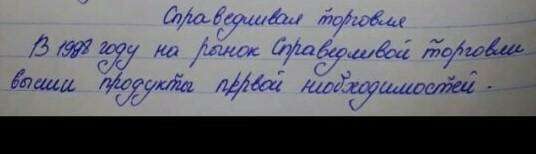 Справедливая торговля
В 1998 году на рынок Справедливой Торговли
вышли продукты первой необходимостей.